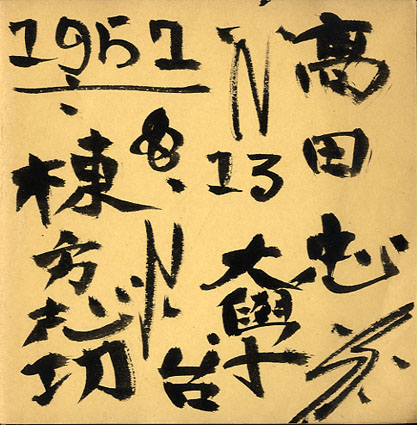 1951
8.
13
高田忠
大學
台
棟方志功